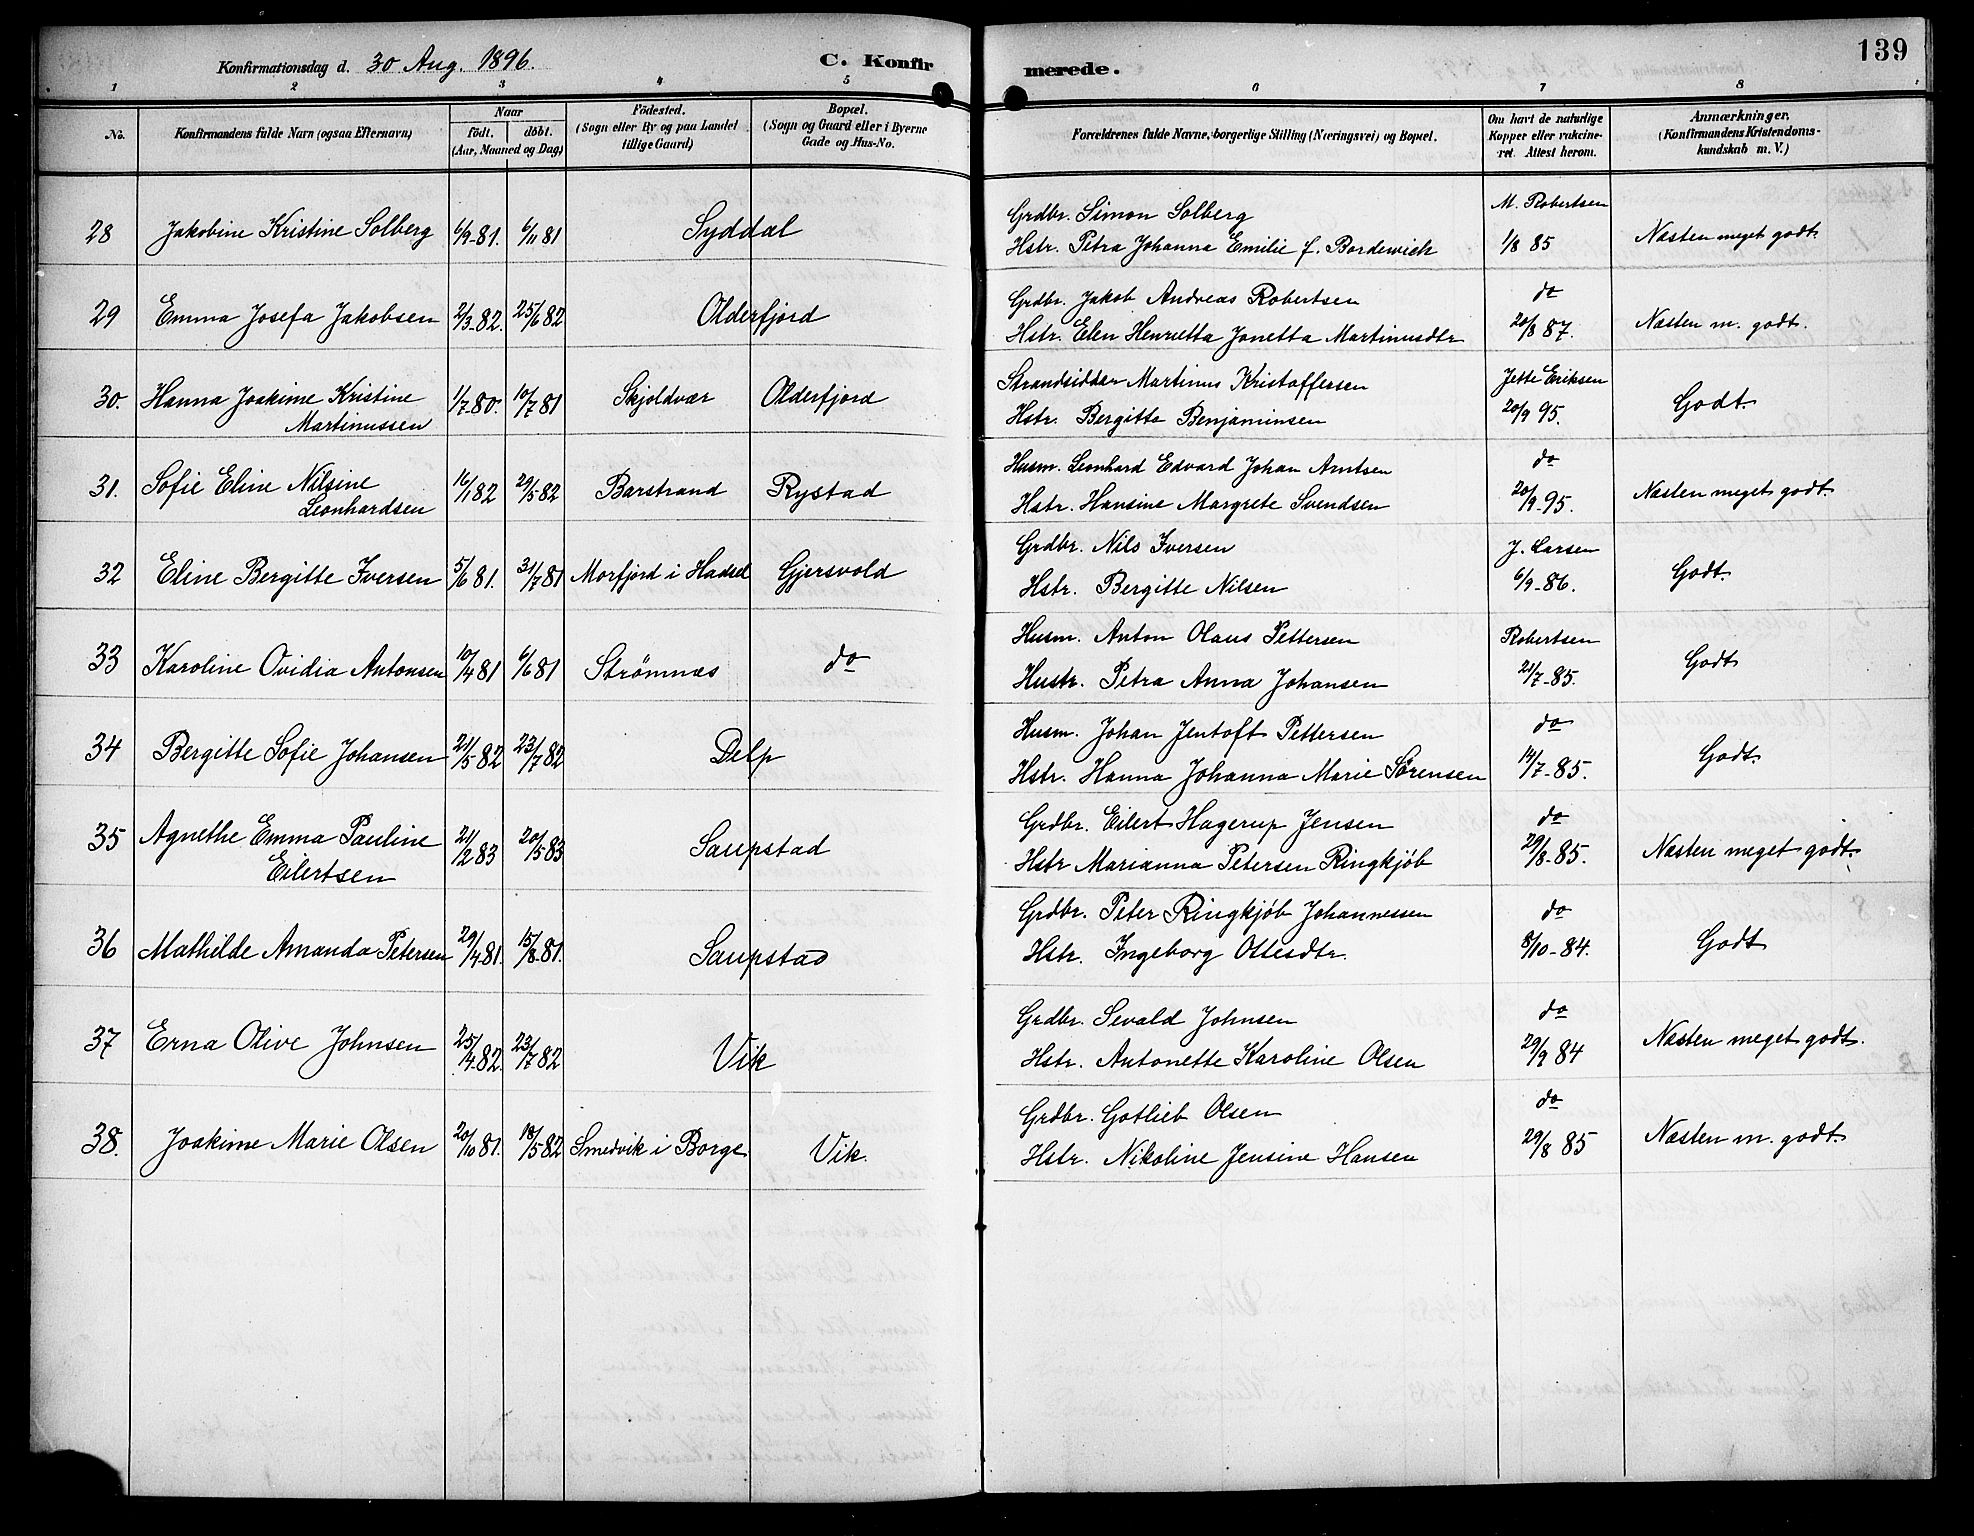 Konfirmationsdag d. 30 Aug. 1896. C. Konfirmerede. 139
1 2 3 4 5 6 7 8
No. Konfirmandens fulde Navn (ogsaa Efternavn) Naar födt. döbt. (Aar, Maaned og Dag) Födested. (Sogn eller By og paa Landet tillige Gaard) Bopæl. (Sogn og Gaard eller i Byerne Gade og Hus-No. Forældrenes fulde Navne, borgerlige Stilling (Næringsvei) og Bopæl. Om havt de naturlige Kopper eller vakcineret. Attest herom. Anmærkninger. (Konfirmandens Kristendomskundskab m. V.)
28 Jakobine Kristine Solberg 6/9-81. 6/11 81 Syddal Grdbr. Simon Solberg M. Robertsen Næsten meget godt.
Hstr. Petra Johanna Emilie f. Bordewich 1/8 85
29 Emma Josefa Jakobsen 2/3-82. 25/6 82 Olderfjord Grdbr. Jakob Andreas Robertsen do Næsten m. godt.
Hstr. Elen Henrietta Janetta Martinusdtr 20/8 87.
30. Hanna Joakime Kristine 1/7-80. 10/7 81 Skjoldvær Olderfjord Strandsidder Martinus Kristoffersen Jette Eriksen Godt.
Martinussen Hstr. Bergitte Benjaminsen 20/9 95.
31. Sofie Eline Nilsine 16/1 82 29/5 82 Barstrand Rystad Husm. Leonhard Edvard Johan Arntsen do Næsten meget godt.
Leonhardsen Hstr. Hansine Margrete Svendsen 20/9-95.
32 Eline Bergitte Iversen 5/6 81. 31/7 81 Morfjord i Hadsel Gjersvold Grdbr. Nils Iversen J. Larsen Godt.
Hstr. Bergitte Nilsen 6/9-86.
33 Karoline Ovidia Antonsen 10/4 81 6/6 81 Strømnæs do Husm. Anton Olaus Pettersen Robertsen Godt
Hustr. Petra Anna Johansen 21/7-85.
34 Bergitte Sofie Johansen 21/5 82 23/7 82 Delp Husm. Johan Jentoft Pettersen do Godt.
Hstr. Hanna Johanna Marie Sørensen 14/7-85.
35 Agnethe Emma Pauline 21/2 83 20/5 83 Saupstad Grdbr. Eilert Hagerup Jensen do Næsten meget godt.
Eilertsen Hstr Marianna Petersen Ringkjöb 29/8-85.
36 Mathilde Amanda Petersen 29/4-81. 15/8-81. Saupstad Grdbr. Peter Ringkjöb Johannessen do Godt
Hstr. Ingeborg Ottesdtr. 8/10-84.
37 Erna Olive Johnsen 25/4-82. 23/7 82 Vik Grdbr. Sevald Johnsen do Næsten meget godt.
Hstr. Antonette Karoline Olsen 29/9 84
38. Joakime Marie Olsen 20/10 81. 18/5 82 Smedvik i Borge Vik. Grdbr. Gotlieb Olsen do Næsten m. godt.
Hstr. Nikoline Jensine Hansen 29/8 85